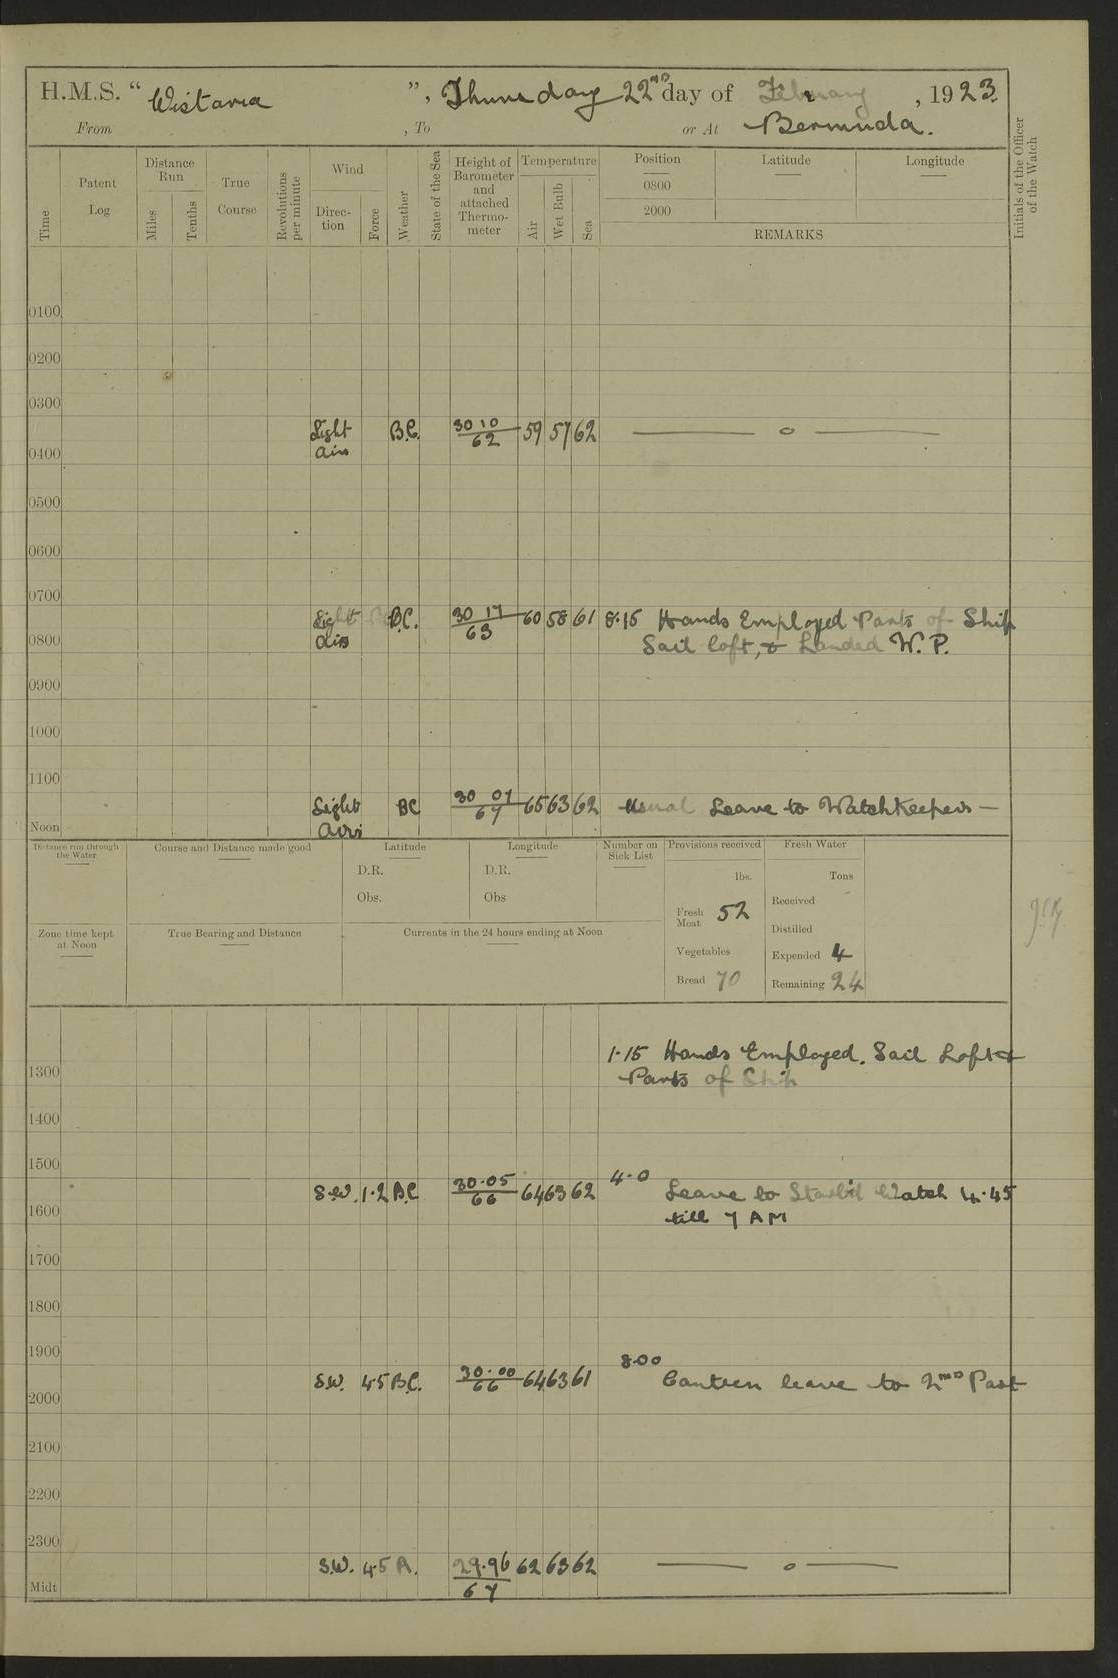 H.M.S. “ Wistaria ”, Thursday 22ND day of February , 1923.
From , To or At Bermuda.
Time
Patent Log
Distance Run
Miles
Tenths
True Course
Revolutions per minute
Wind
Direc-tion
Force
Weather
State of the Sea
Height of Barometer and attached Thermo-meter
Temperature
Air
Wet Bulb
Sea
Position Latitude Longitude
0800
2000
REMARKS
Initials of the Officer of the Watch
0100
0200
0300
Light B.C. 30 10 59 57 62 — o —
airs 62
0400
0500
0600
0700
Light B.C. 30 17 60 58 61 8.15 Hands Employed Parts of Ship
airs 63 Sail loft, & Landed W. P.
0800
0900
1000
1100
Light BC 30 07 65 63 62 Usual Leave to Watchkeepers —
Airs 67
Noon
Distance run through the Water
Course and Distance made good
Latitude
D.R.
Obs.
Longitude
D.R.
Obs
Number on Sick List
Provisions received
lbs.
Fresh Meat 52
Vegetables
Bread 70
Fresh Water
Tons
Received
Distilled
Expended 4
Remaining 24
Zone time kept at Noon
True Bearing and Distance
Currents in the 24 hours ending at Noon
1.15 Hands Employed. Sail Loft &
1300 Parts of Ship
1400
1500
4-0
S.W. 1.2 B.C 30.05 64 63 62 Leave to Starb'd Watch 4.45
66 till 7 AM
1600
1700
1800
1900
8.00
S.W. 4.5 B.C. 30.00 64 63 61 Canteen leave to 2ND Part
66
2000
2100
2200
2300
S.W. 4.5 29.96 62 63 62 — o —
67
Midt